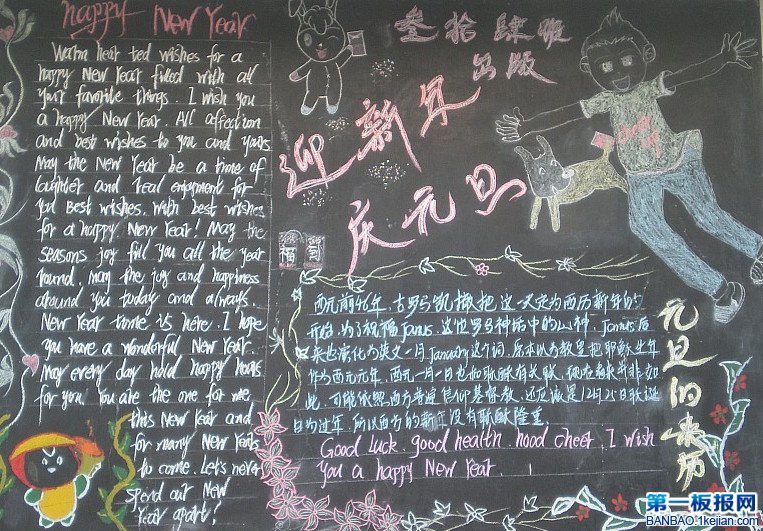 happy New Year
Warm hearted wishes for a
happy New Year filled with all
your favorite things. I wish you
a happy New Year. All affection
and best wishes to you and yours
May the New Year be a time of
laughter and real enjoyment for
you Best wishes. with best wishes
for a happy New Year! May the
seasons joy fill you all the year
round, may the joy and happiness
around you today and always.
New Year time is here. I hope
you have a wonderful New Year.
May every day hold happy hours
for you. You are the one for me
this New Year and
for many New Years
to come. Let's never
spend our New
Year apart!
叁拾肆班
出版
迎新年
庆元旦
福到
西元前46年，古罗马凯撒把这一天定为西历新年的
开始，为了祝福Janus，这位罗马神话中的 Janus后
来也演化为英文一月January这个词，
作为西元元年，西元一月一日也和耶稣有关联，
此，可能依照西方普遍信仰基督教，还应该是12月25日耶诞
日为过年，所以西方的新年没有耶稣隆重。
Good luck, good health, hood cheer. I wish
you a happy New Year.
元旦的来历
第一板报网
BANBAO.1kejian.com